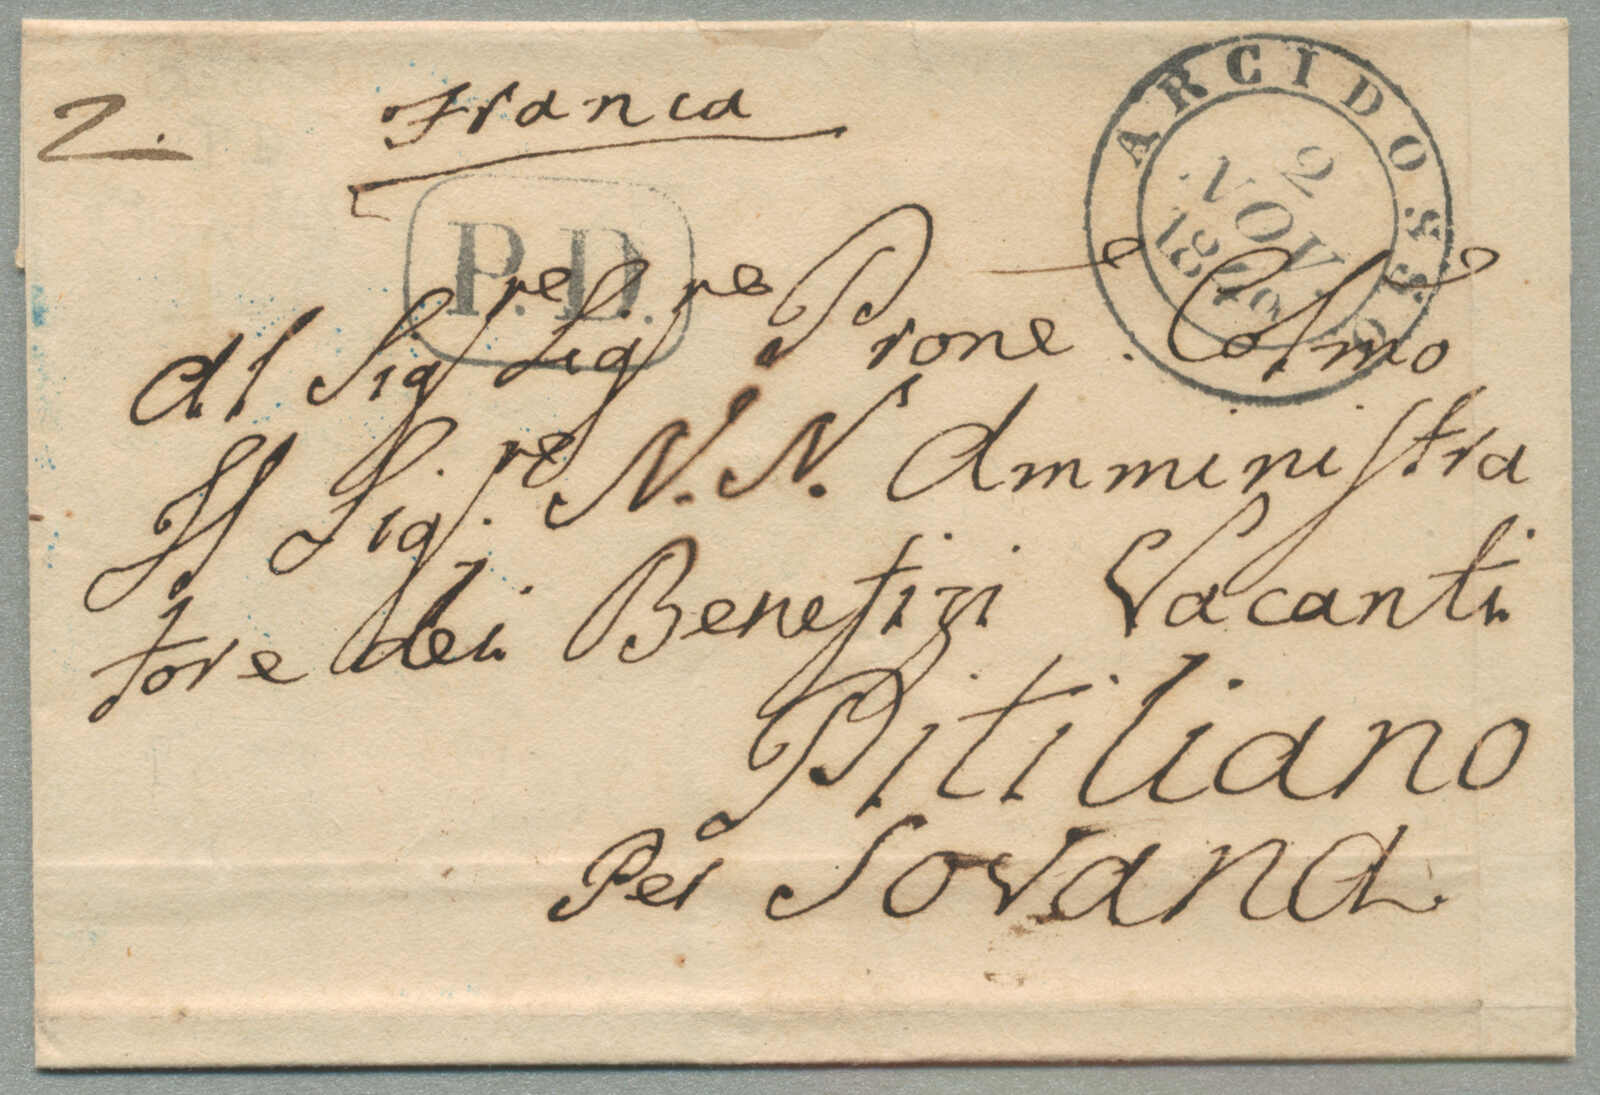 2. Franca
ARCIDOSSO
2
NOV.
P.D.
Al Sig.re Sig.re Prone Colmo
Il Sig.re N. N. Amministra
tore dei Benefizi Vacanti
Pitiliano
Per Sovana